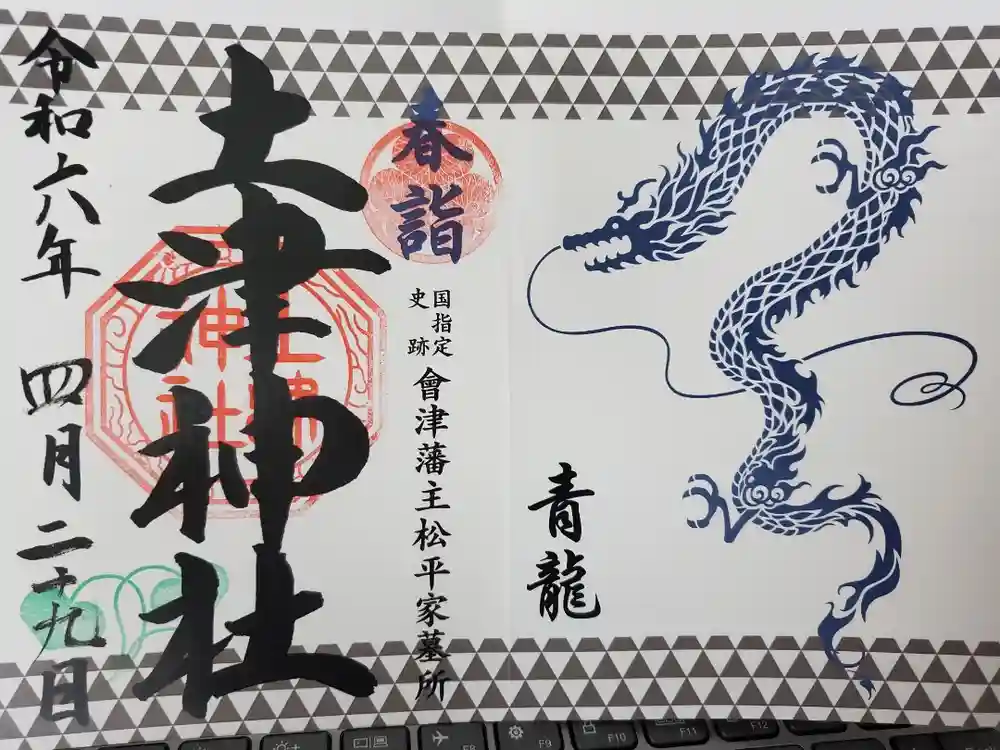 青龍
春詣
国指定
史跡
會津藩主松平家墓所
土津神社
土津
神社
令和六年 四月二十九日
F8
F9
F10
F11
F12